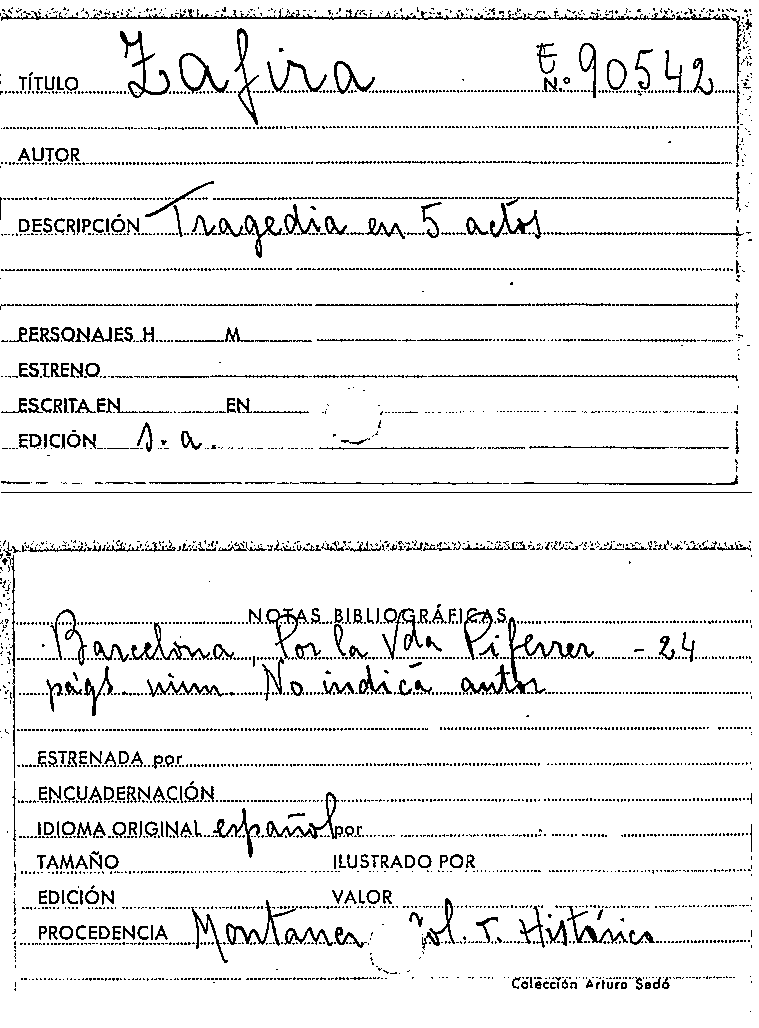 TÍTULO Zafira E N.º 90542
AUTOR
DESCRIPCIÓN Tragedia en 5 actos
PERSONAJES H M
ESTRENO
ESCRITA EN EN
EDICIÓN s. a.
NOTAS BIBLIOGRÁFICAS
Barcelona, Por la Vda Piferrer - 24
págs. num. No indica autor
ESTRENADA por
ENCUADERNACIÓN
IDIOMA ORIGINAL español por
TAMAÑO ILUSTRADO POR
EDICIÓN VALOR
PROCEDENCIA Montaner Col. T. Histórico
Colección Arturo Sedó